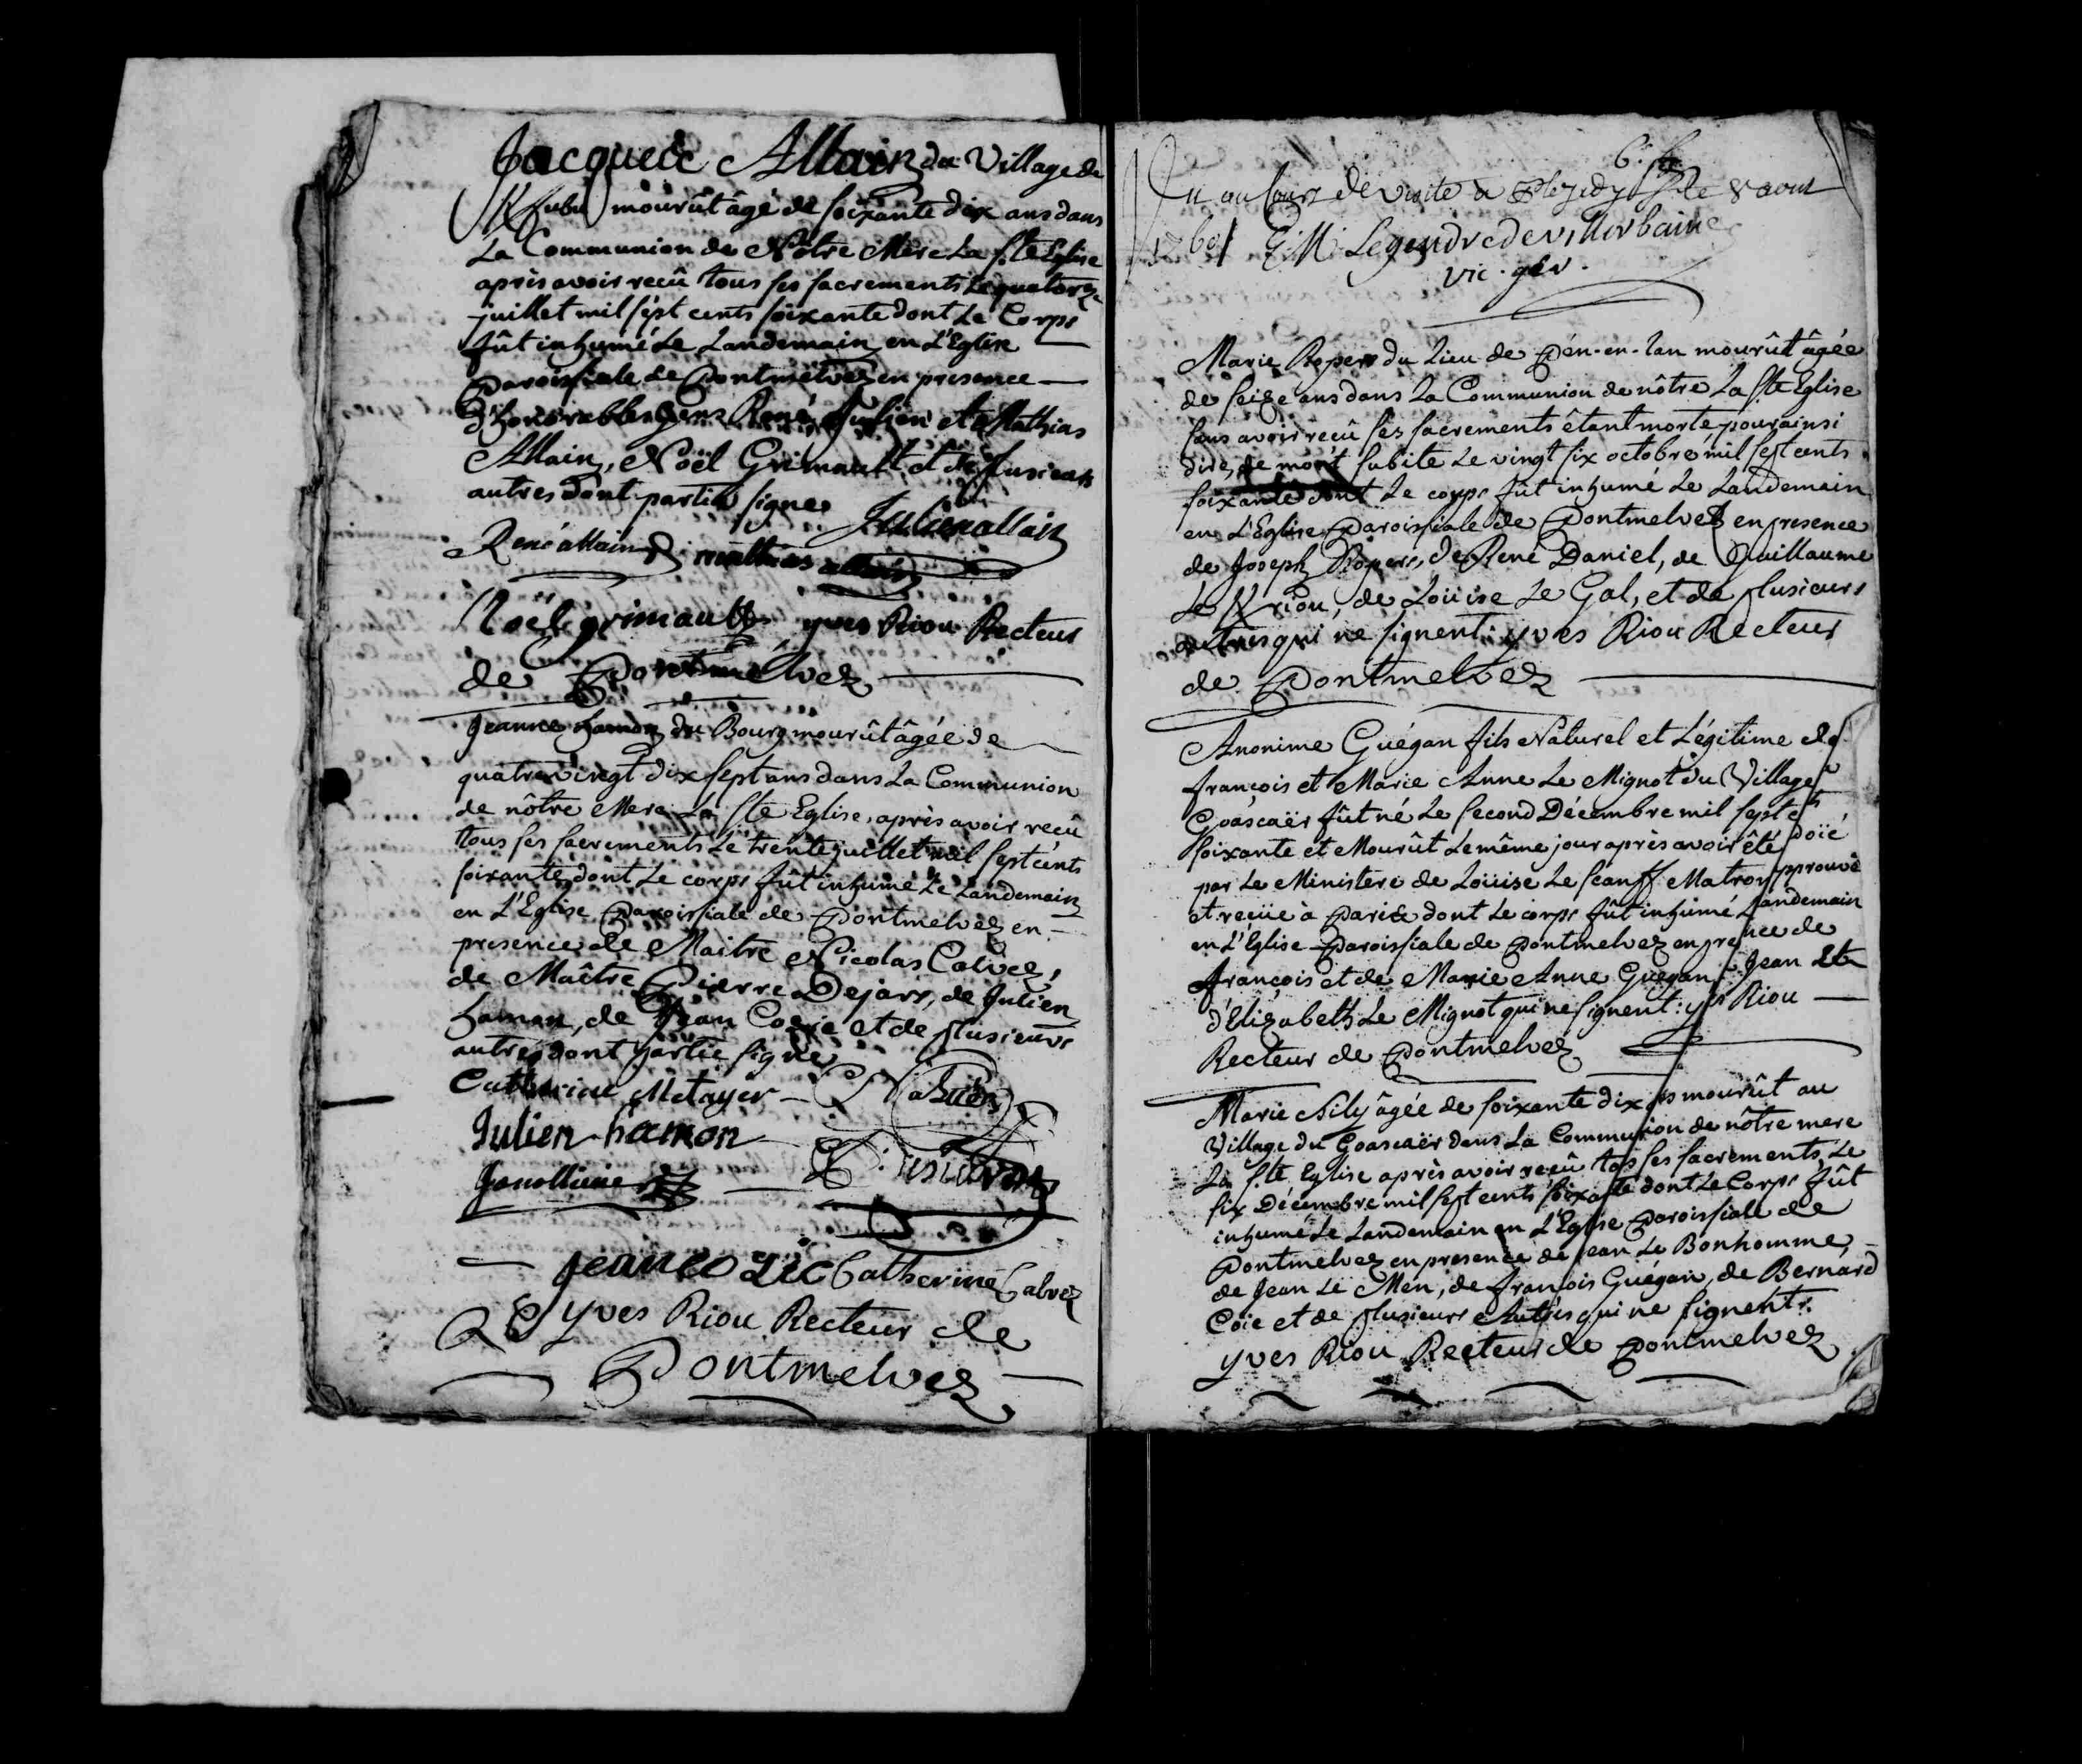 Jacques Allain du Village de
mourût âgé de soixante dix ans dans
La Communion de Nôtre Mere La Ste Eglise
après avoir reçû tous ses sacrements Le quatorze
juillet mil sept cents soixante dont Le Corps
fût inhumé Le Landemain en L'Eglise
Paroissiale de Pontmelvez en presence
d'honorables Gens René, Julien et Mathias
Allain, Noël Grimault et de plusieurs
autres dont partie signe
Julien allain
René allain mathias allain
Noël grimault yves Riou Recteur
de Pontmelvez
Jeanne hamon du Bourg mourût âgée de
quatre vingt dix sept ans dans La Communion
de nôtre Mere La Ste Eglise, après avoir reçû
tous ses sacrements Le trente juillet mil sept cents
soixante dont Le corps fût inhumé Le Landemain
en L'Eglise Paroissiale de Pontmelvez en
presence de Maitre Nicolas Calvez,
de Maître Pierre Dejars, de Julien
hamon, de Jean Coëic et de plusieurs
autres dont partie signe
Catherine Metayer
Julien hamon
Jean Catherine Calvez
Yves Riou Recteur de
Pontmelvez
Vu au cours de visite à le 8 aout
1760 Legendre de
vic. gén.
Marie Ropers du Lieu de Pén-en-lan mourût âgée
de seize ans dans La Communion de nôtre La Ste Eglise
sans avoir reçû ses sacrements êtant morte pour ainsi
dire, de mort subite Le vingt six octobre mil sept cents
soixante dont Le corps fût inhumé Le Landemain
en L'Eglise Paroissiale de Pontmelvez en presence
de Joseph Ropers, de René Daniel, de Guillaume
de Loüise Le Gal, et de plusieurs
autres qui ne signent: yves Riou Recteur
de Pontmelvez
Anonime Guégan fils Naturel et Légitime de
françois et Marie Anne Le Mignot du Village
Goascaër fût né Le second Décembre mil sept
soixante et Mourût Le même jour après avoir été
par Le Ministere de Loüise Le
et reçüe à Paris dont Le corps fût inhumé Landemain
en L'Eglise Paroissiale de Pontmelvez en presence de
françois et de Marie Anne Guégan Jean et
d'Elizabeth Le Mignot qui ne signent: yves Riou
Recteur de Pontmelvez
Marie Sily âgée de soixante dix ans mourût au
Village du Goascaër dans La Communion de nôtre mere
La Ste Eglise après avoir reçû tous ses sacrements, Le
six Décembre mil sept cents soixante dont Le Corps fût
inhumé Le Landemain en L'Eglise Paroissiale de
Pontmelvez en presence de Jean Le Bonhomme,
de Jean Le Men, de françois Guégan, de Bernard
Coïc et de plusieurs Autres qui ne signent:
yves Riou Recteur de Pontmelvez